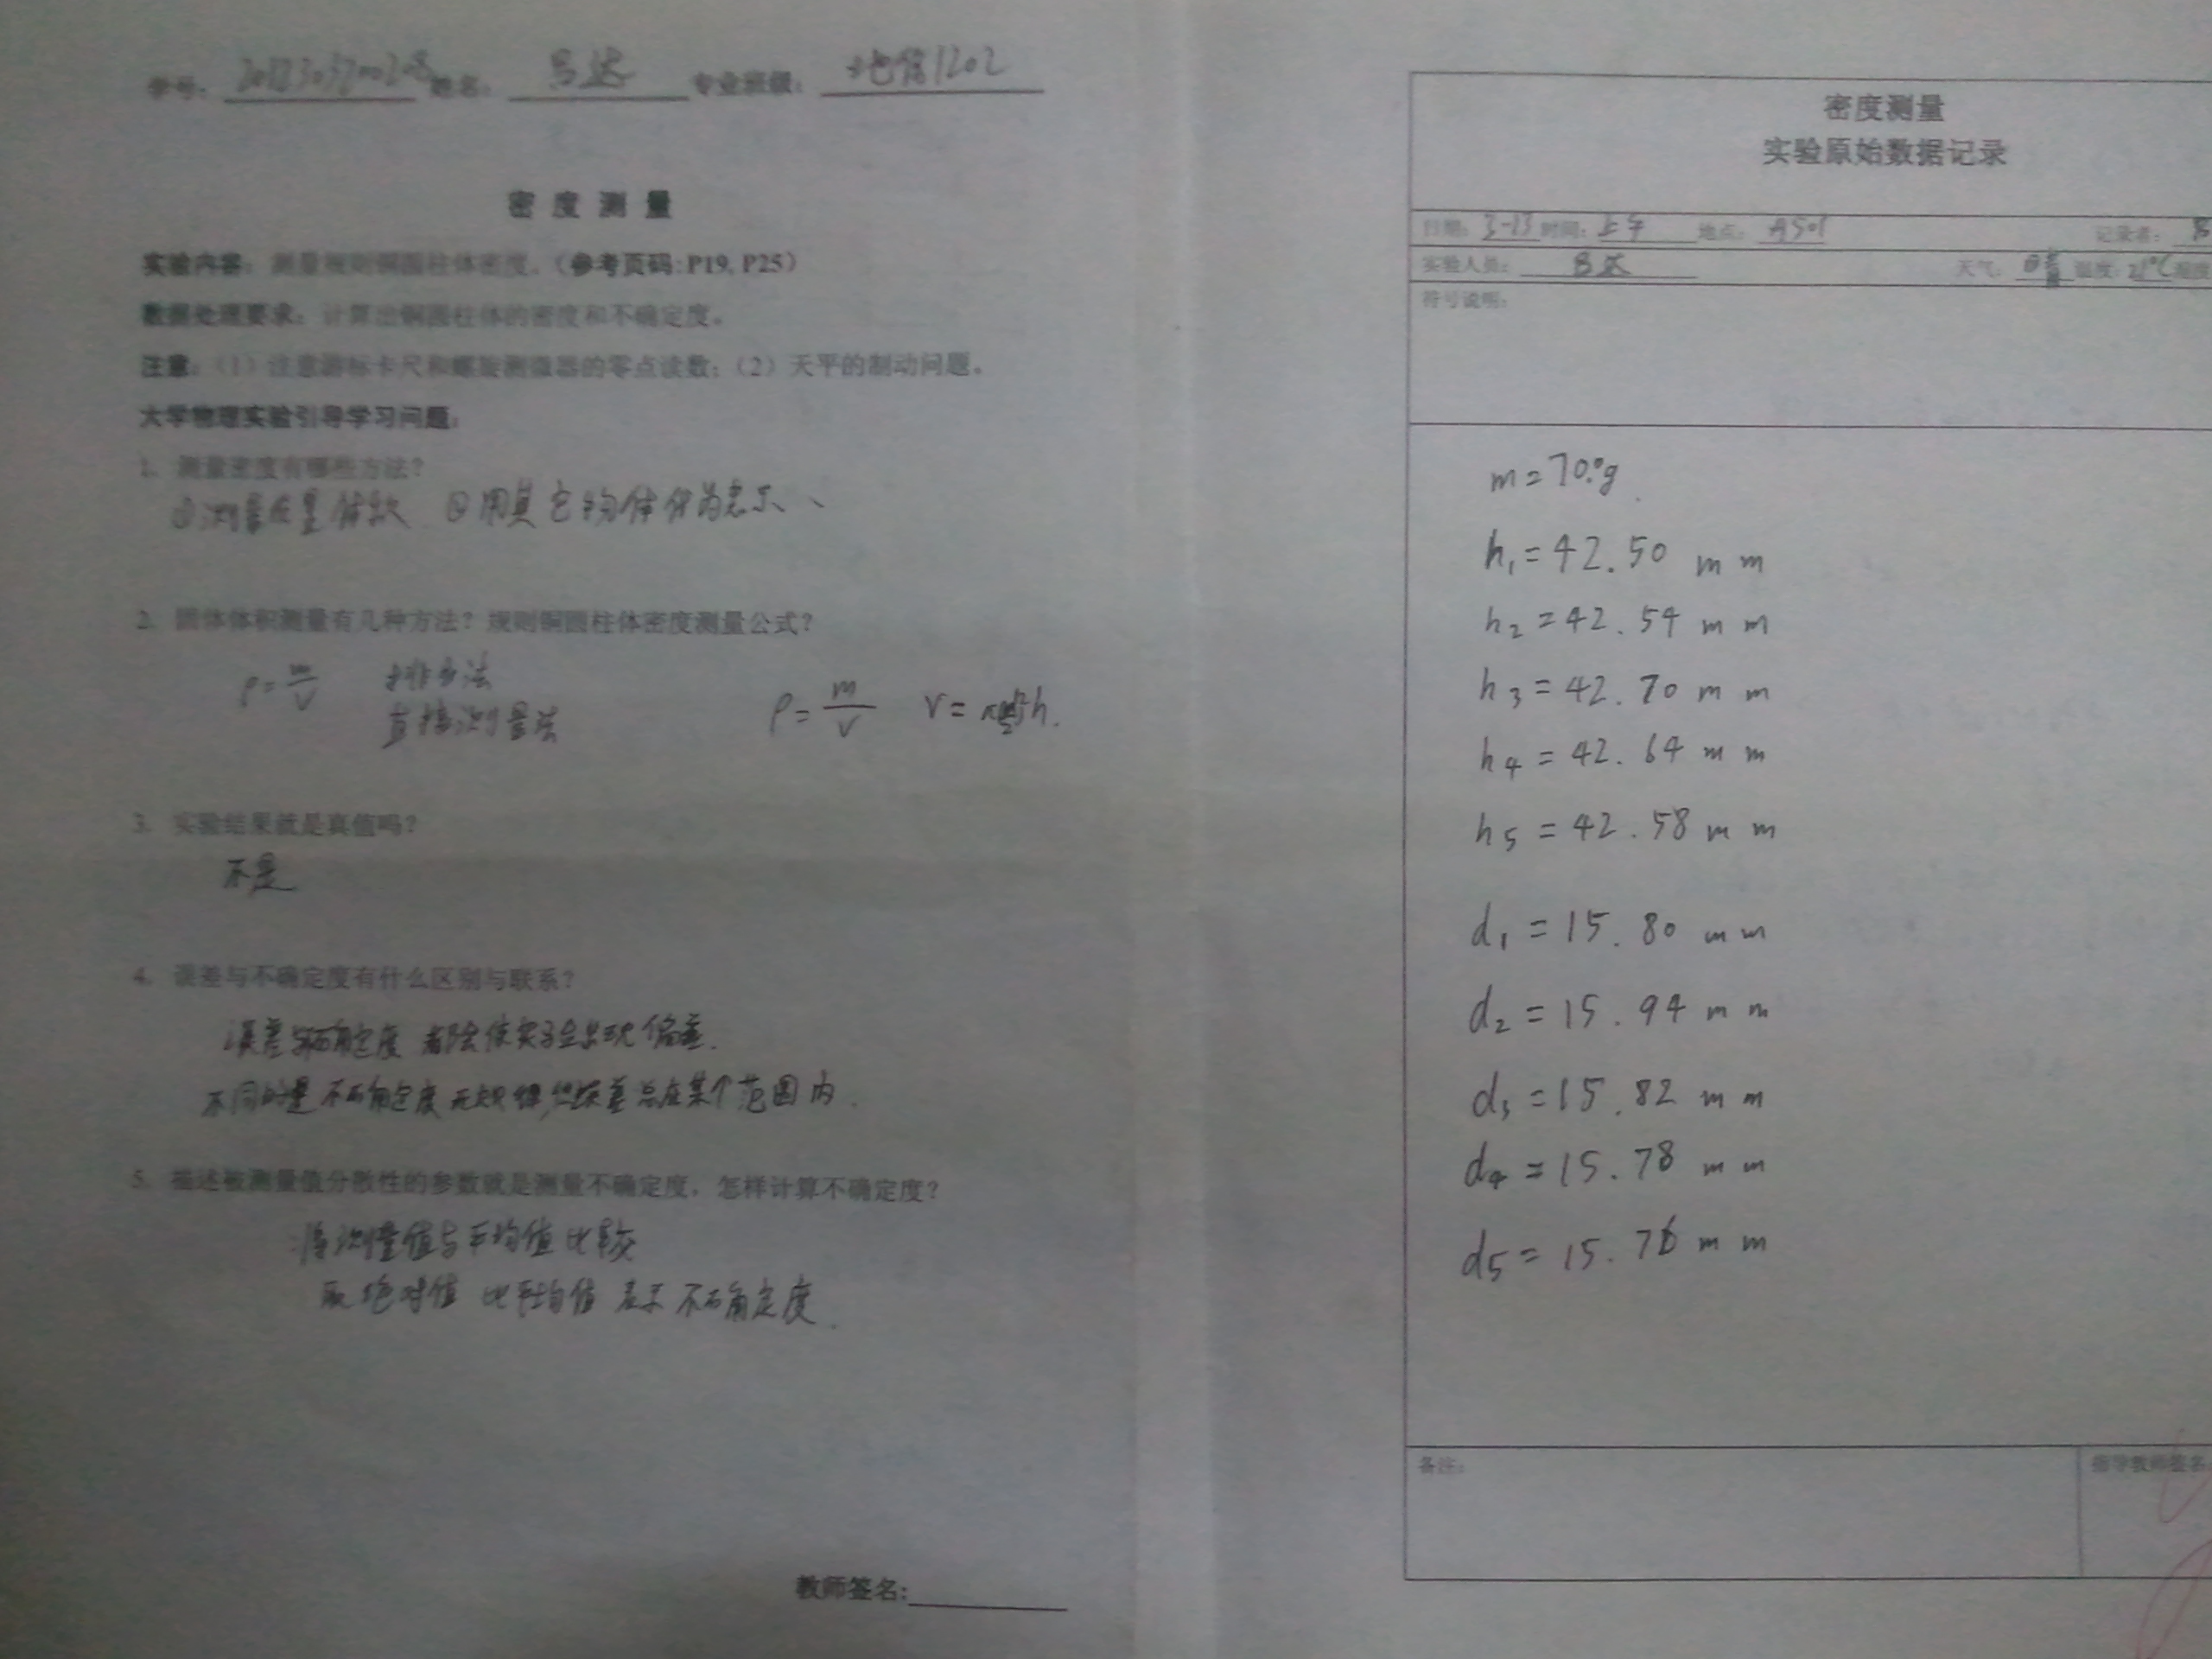 学号： 姓名： 吕达 专业班级： 地信1202
密 度 测 量
实验内容：测量规则铜圆柱体密度。（参考页码：P19, P25）
数据处理要求：计算出铜圆柱体的密度和不确定度。
注意：（1）注意游标卡尺和螺旋测微器的零点读数；（2）天平的制动问题。
大学物理实验引导学习问题：
1. 测量密度有哪些方法？
①测量质量体积 ②用其它物体作为表示、
2. 固体体积测量有几种方法？规则铜圆柱体密度测量公式？
ρ=m/V 排水法
直接测量法
ρ=m/V V=π h.
3. 实验结果就是真值吗？
不是
4. 误差与不确定度有什么区别与联系？
误差与不确定度 都会使实验出现偏差.
不同的是 不确定度无规律,但误差总在某个范围内.
5. 描述被测量值分散性的参数就是测量不确定度，怎样计算不确定度？
将测量值与平均值比较
取绝对值 比平均值 表示 不确定度.
教师签名:
密度测量
实验原始数据记录
日期：3-13 时间：上午 地点：A501 记录者：
实验人员： 吕达 天气： 温度：21℃ 湿度
符号说明：
m=70.0g
h₁=42.50 mm
h₂=42.54 mm
h₃=42.70 mm
h₄=42.64 mm
h₅=42.58 mm
d₁=15.80 mm
d₂=15.94 mm
d₃=15.82 mm
d₄=15.78 mm
d₅=15.76 mm
备注：
指导教师签名